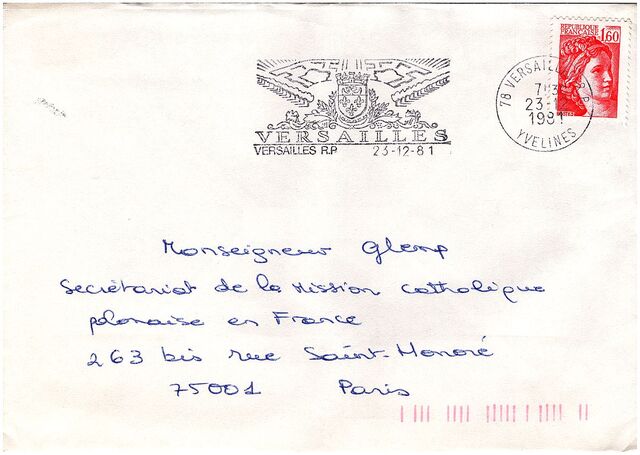 REPUBLIQUE
FRANÇAISE
1,60
78 VERSAILLES R.P.
23-
1981
YVELINES
VERSAILLES
VERSAILLES R.P 23-12-81
Monseigneur Glemp
Secrétariat de la Mission Catholique
polonaise en France
263 bis rue Saint-Honoré
75001 Paris